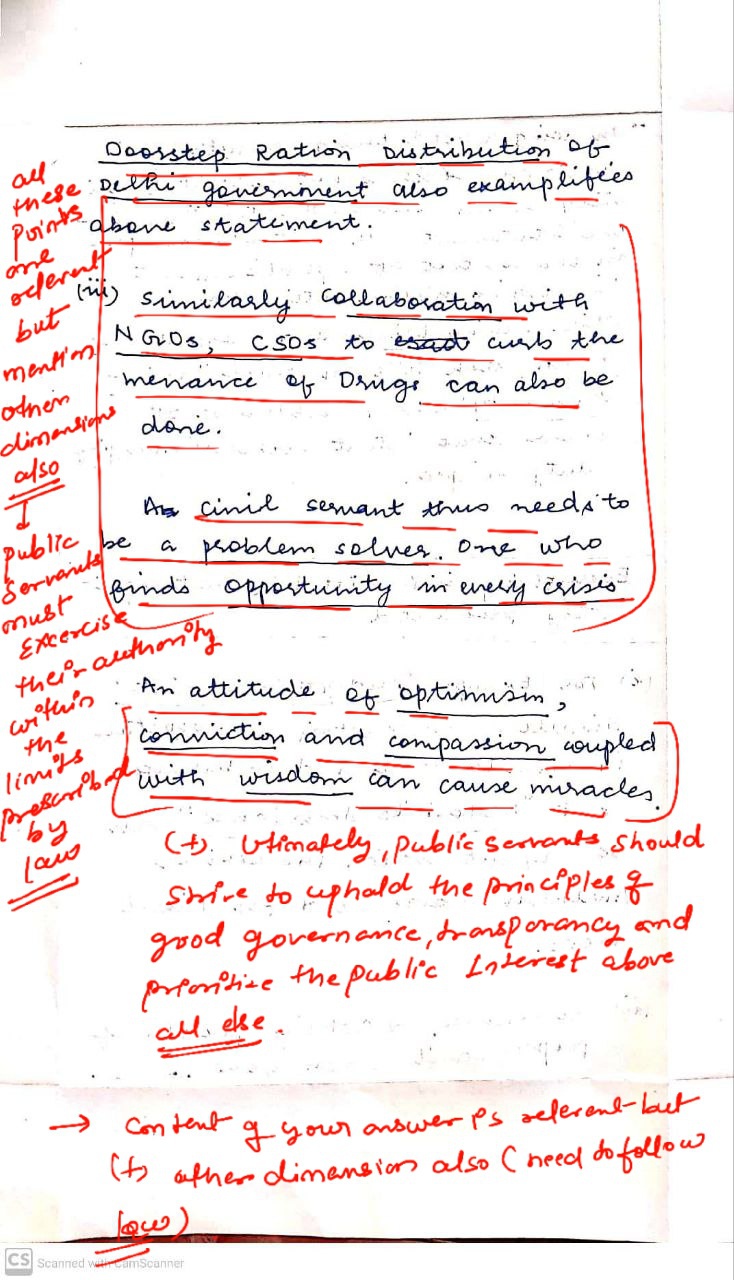 Doorstep Ration Distribution of
Delhi government also examplifies
above statement.
(iii) Similarly Collaboration with
NGOs, CSOs to curb the
menance of Drugs can also be
done.
A civil servant thus needs to
be a problem solver. One who
finds opportunity in every crisis
An attitude of optimism,
conviction and compassion coupled
with wisdom can cause miracles.
all
these
Points
are
relevant
but
mention
other
dimensions
also
public
Servants
must
Excercise
their authority
within
the
limits
prescribed
by
law
(+) Utimately, public servants should
strive to uphald the principles of
good governance, transparancy and
prioritize the public Interest above
all else.
→ Content of your answer is relevant but
(+) other dimension also (need to follow
law)
CS Scanned with CamScanner